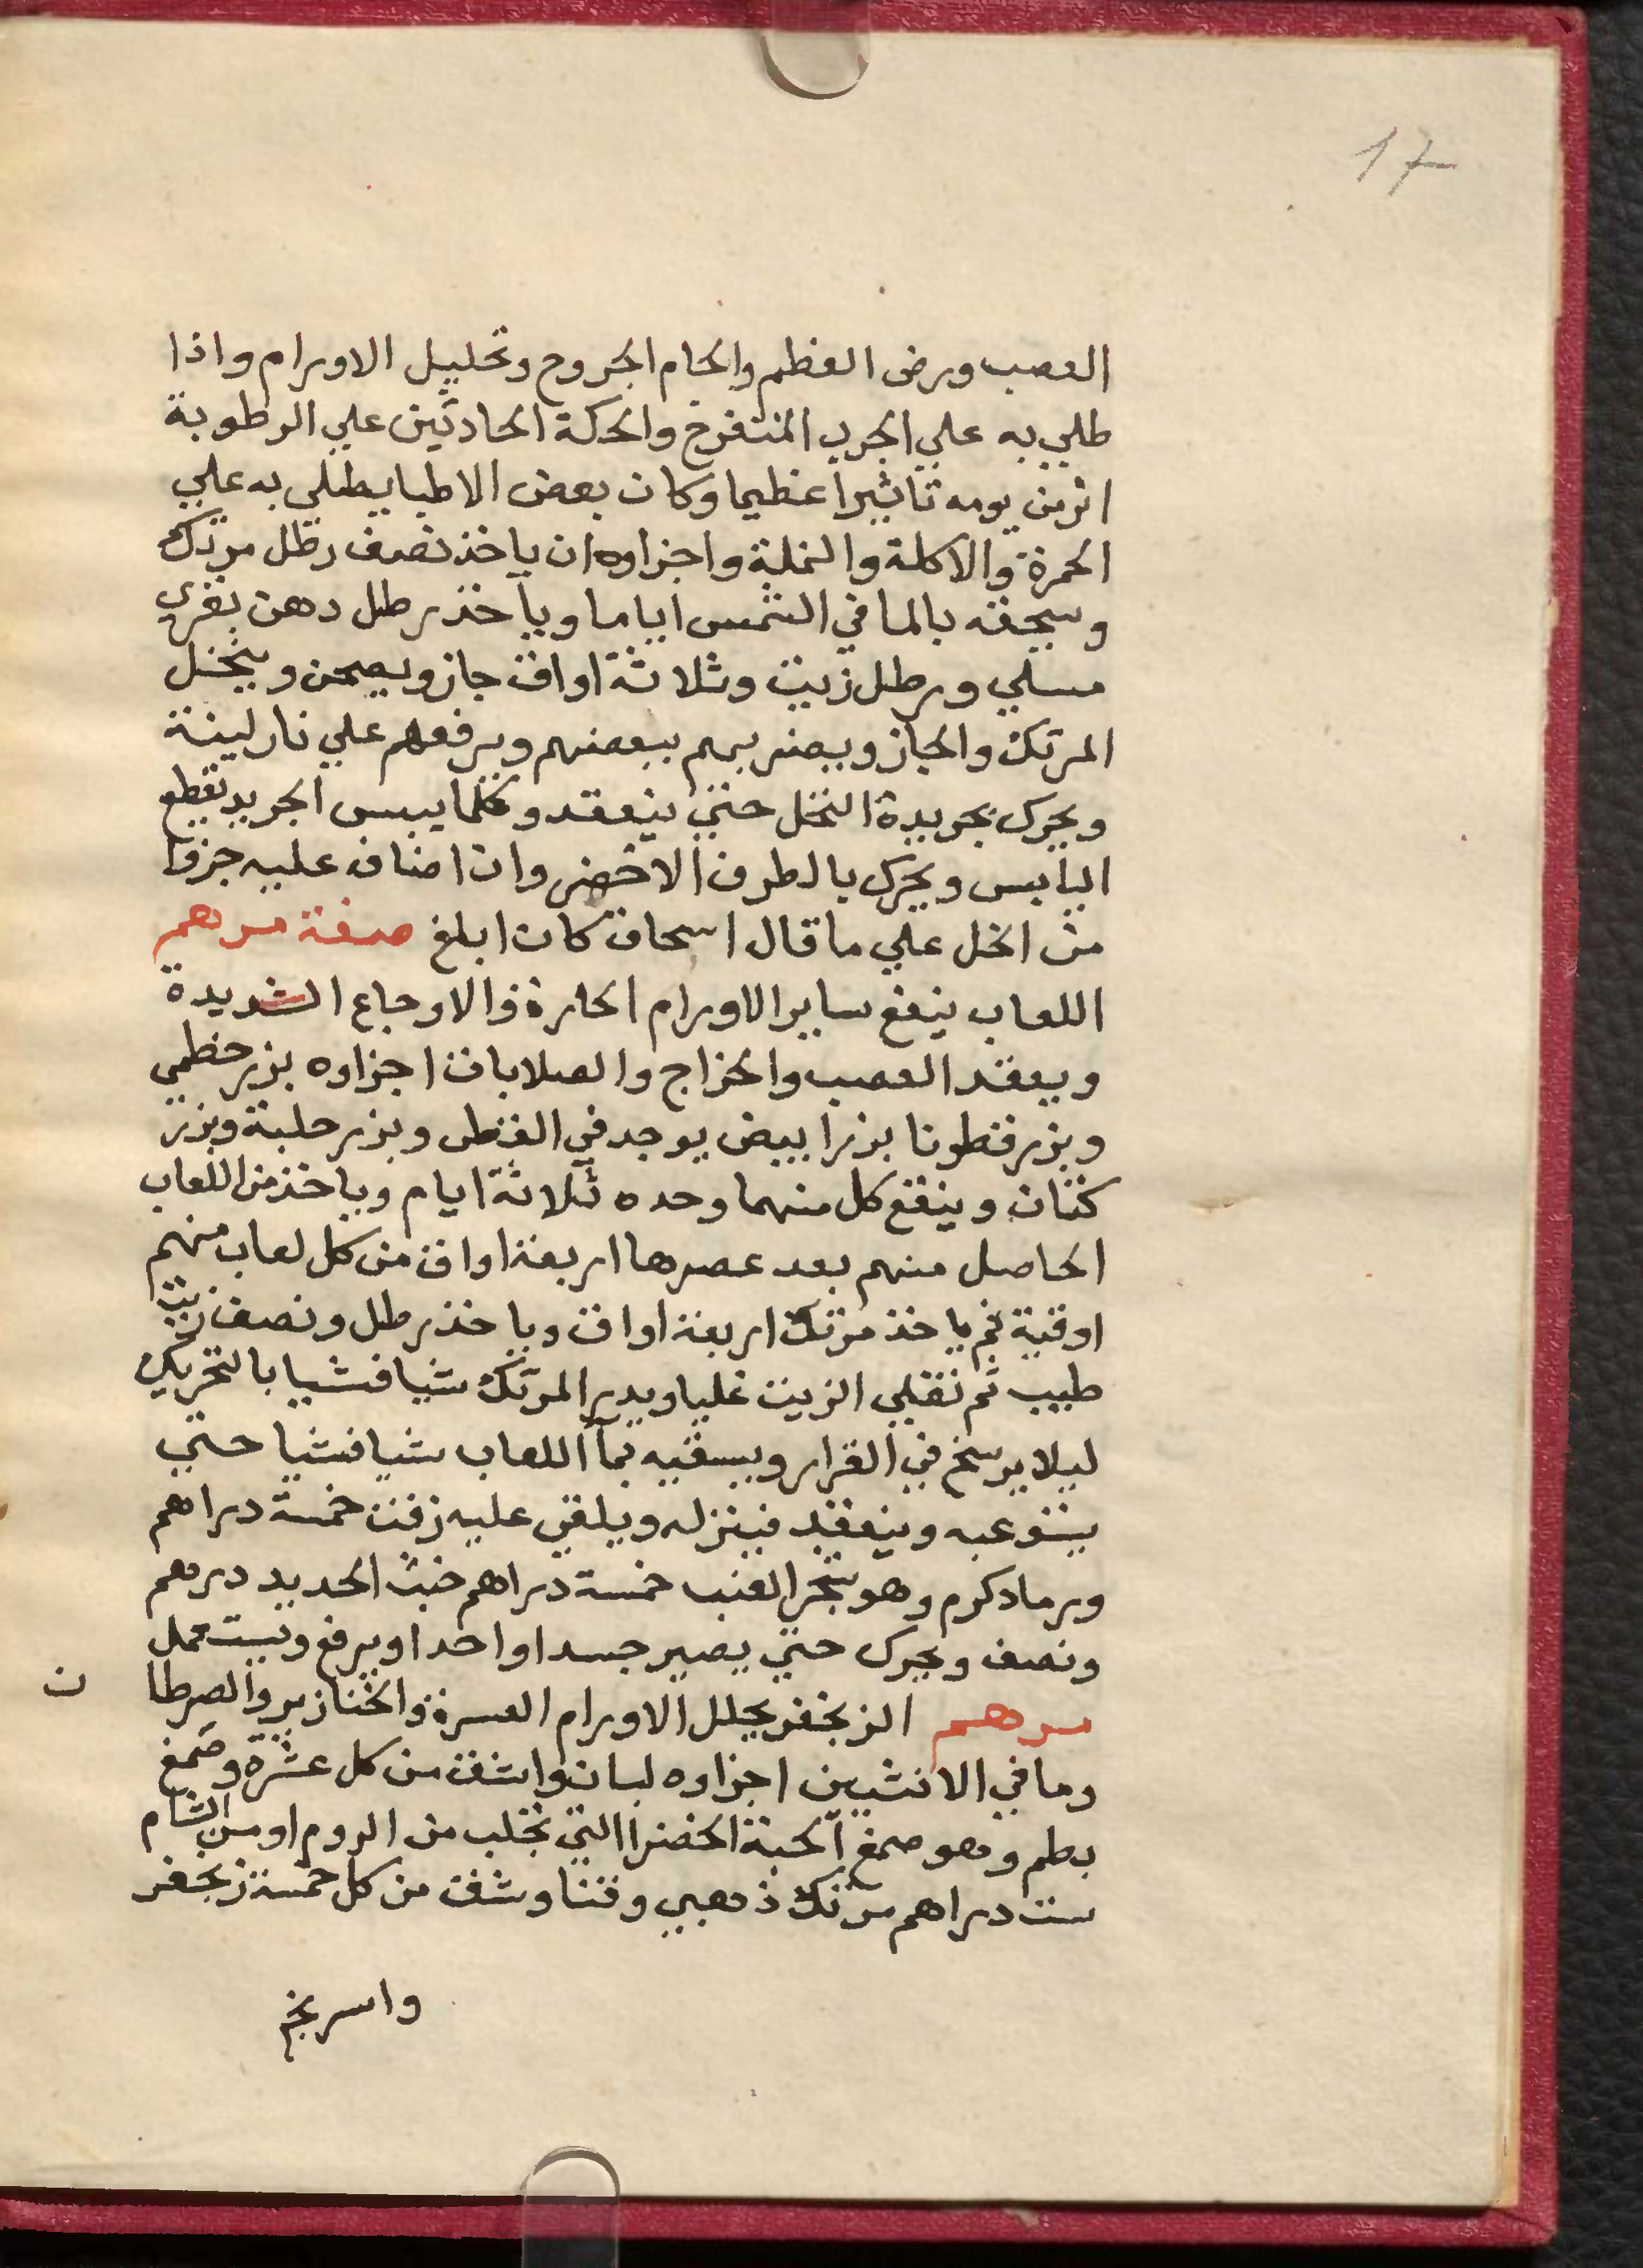 17
العصب ورض العظم والحام الجروح وتحليل الاورام واذا
طلي به علي الجرب المتقرح والحكة الحادثين علي الرطوبة
اثر من يومه تاثيرا عظيما وكان بعض الاطبا يطلي به علي
الحمرة والاكلة والنملة واجزاوه ان ياخذ نصف رطل مرتك
وسحقه بالما في الشمس اياما وياخذ رطل دهن بقري
مسلي ورطل زيت وثلاثة اواق جاز ويصحن وينخل
المرتك والجاز ويضربهم ببعضهم ويرفعهم علي نار لينة
ويحرك بجريدة النخل حتي ينعقد وكلما يبس الجريد يقطع
اليابس ويحرك بالطرف الاخضر وان اضاف عليه جزوا
من الخل علي ما قال اسحاق كان ابلغ صفة مرهم
اللعاب ينفع ساير الاورام الحارة والاوجاع الشديدة
ويعقد العصب والخراج والصلابات اجزاوه بزر خطمي
وبزر قطونا بزر ابيض يوجد في القطن وبزر حلبة وبزر
كتان وينقع كل منهما وحده ثلاثة ايام وياخذ من اللعاب
الحاصل منهم بعد عصرها اربعة اواق من كل لعاب منهم
اوقية ثم ياخذ مرتك اربعة اواق وياخذ رطل ونصف زيت
طيب ثم تغلي الزيت غليا ويدير المرتك شيا فشيا بالتحريك
ليلا يرسخ في القرار ويسقيه بما اللعاب شيا فشيا حتي
يستوعبه وينعقد فينزله ويلقي عليه زفت خمسة دراهم
ورماد كرم وهو شجر العنب خمسة دراهم خبث الحديد درهم
ونصف ويحرك حتي يصير جسدا واحدا ويرفع ويستعمل
مرهم الزنجفر يحلل الاورام العسرة والخنازير والصرطا ن
وما في الانثيين اجزاوه لبان واشق من كل عشرة وصمغ
بطم وهو صمغ الحبة الخضرا التي تجلب من الروم او من الشام
ست دراهم مرتك ذهبي وقنا وشق من كل خمسة زنجفر
واسرنج